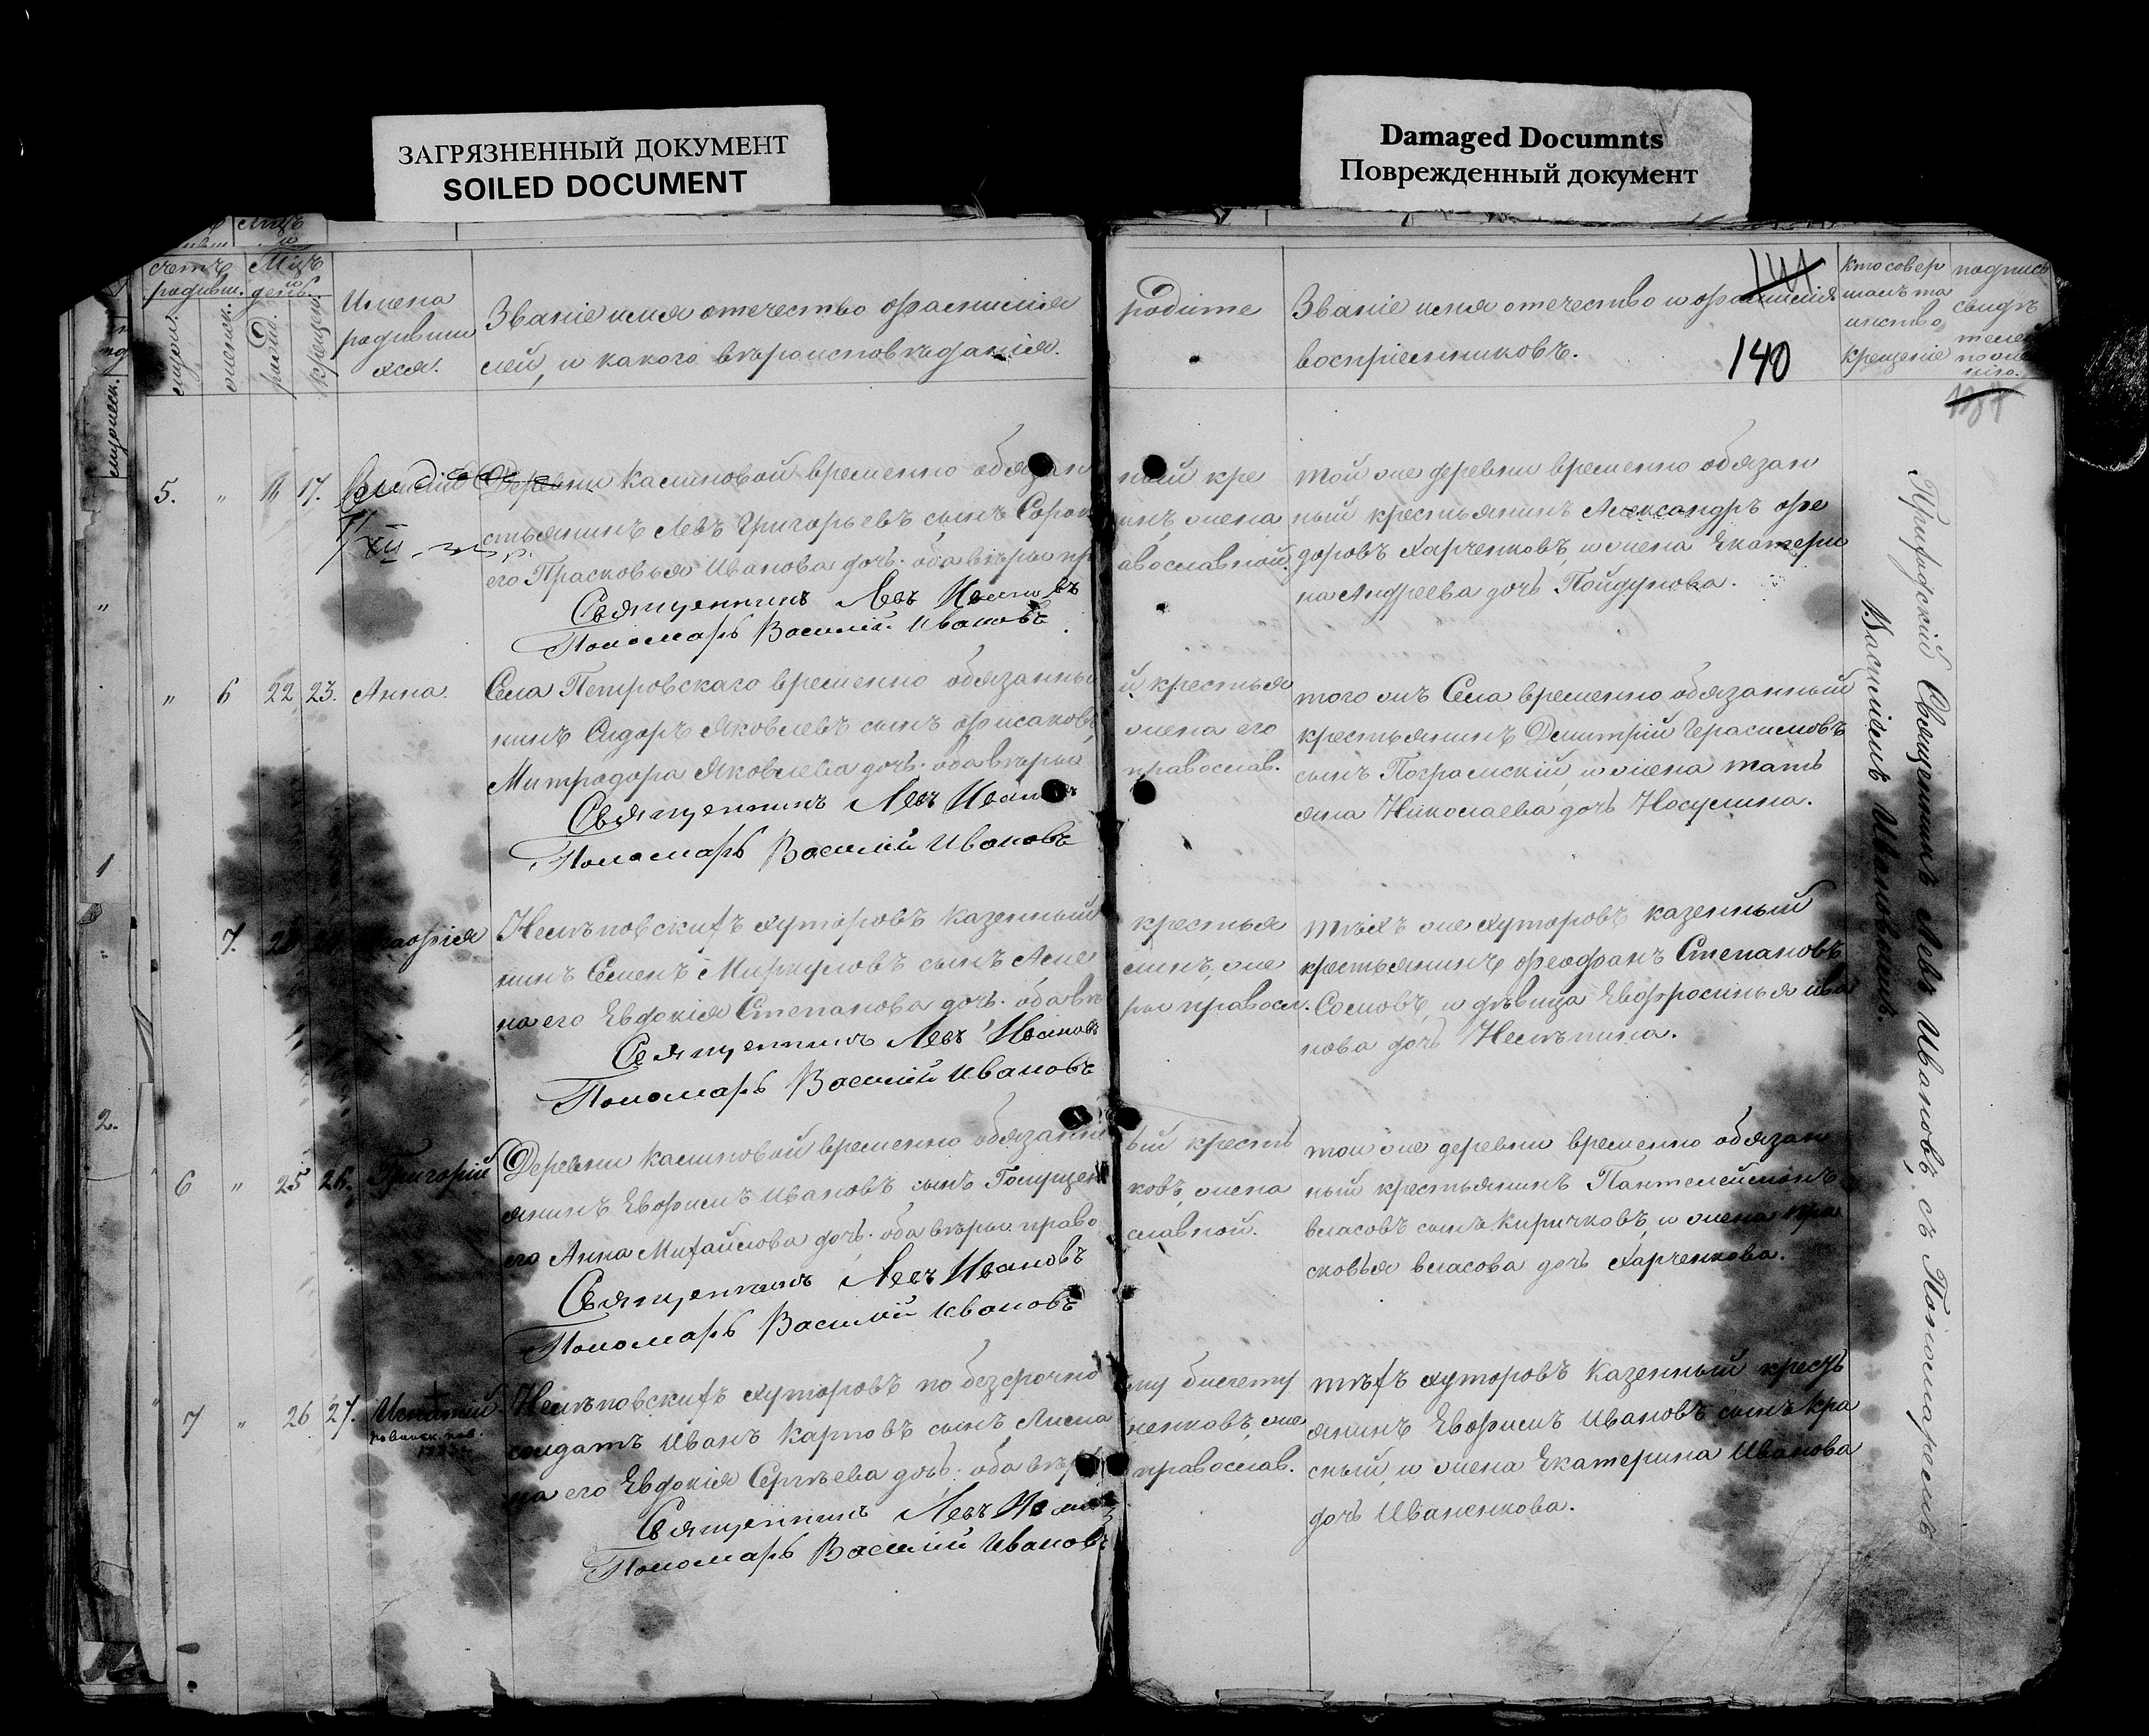 ЗАГРЯЗНЕННЫЙ ДОКУМЕНТ
SOILED DOCUMENT
Damaged Documnts
Поврежденный документ
счетъ родивш.
Мцъ и день.
мужеск.
женск.
рожд.
крещен.
Имена родивши хся.
Званіе имя отечество фамилія
лей, и какого вѣроисповѣданія.
родите
Званіе имя отечество и фамилія
воспріемниковъ.
141
140
кто совер шалъ та инство крещеніе
подпись свидѣ телей
5. " 16 17.
Деревни Калиновой временно обязан
ный кре
стьянинъ Левъ Григорьевъ сынъ
инъ, жена
его Прасковья Иванова дочь. оба вѣры пр
авославной.
Священникъ Левъ Ивановъ
Пономарь Василій Ивановъ
той же деревни временно обязан
ный крестьянинъ Александръ Фе
доровъ Харченковъ, и жена Екатери
на Андреева дочь Пойдунова.
" 6 22 23. Анна.
Села Петровскаго временно обязанны
й крестья
нинъ Сидоръ Яковлевъ сынъ Фисаковъ,
жена его
Митродора Яковлева дочь. оба вѣры
православ.
Священникъ Левъ Иванов
Пономарь Василій Ивановъ
того жъ Села временно обязанный
крестьянинъ Димитрій Герасимовъ
сынъ Пограмскій, и жена Тать
яна Николаева дочь Носулина.
7.
Нелѣповскихъ хуторовъ казенный
крестья
нинъ Семенъ Миркуловъ сынъ
на его Евдокія Степанова дочь. оба вѣ
ры правосл.
Священникъ Левъ Ивановъ
Пономарь Василій Ивановъ
тѣхъ же хуторовъ казенный
крестьянинъ Феофанъ Степановъ
Сомовъ, и дѣвица Евфросинья Ива
нова дочь Нелѣпина.
6 " 25 26. Григорій
Деревни Калиновой временно обязанн
ый кресть
янинъ Евфимъ Ивановъ сынъ
ковъ, жена
его Анна Михайлова дочь. оба вѣры право
славной.
Священникъ Левъ Ивановъ
Пономарь Василій Ивановъ
той же деревни временно обязан
ный крестьянинъ Пантелеймонъ
Власовъ сынъ Киричковъ, и жена Пра
сковья Власова дочь Харченкова.
7 " 26 27. Игнатій
Нелѣповскихъ хуторовъ по безсрочно
му билету
солдатъ Иванъ Карповъ сынъ
ненковъ, же
на его Евдокія Сергѣева дочь. оба вѣры
православ.
Священникъ Левъ Иванов
Пономарь Василій Ивановъ
тѣхъ хуторовъ казенный кресть
янинъ Евфимъ Ивановъ сынъ Кра
сный, и жена Екатерина Иванова
дочь Иваненкова.
Священникъ Левъ Ивановъ, съ Пономаремъ
Василіемъ Ивановымъ.